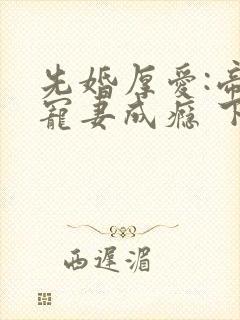 先婚厚爱:帝
寵妻成瘾 下
西遲湄